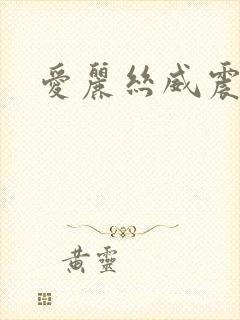 愛麗絲威震
黃靈